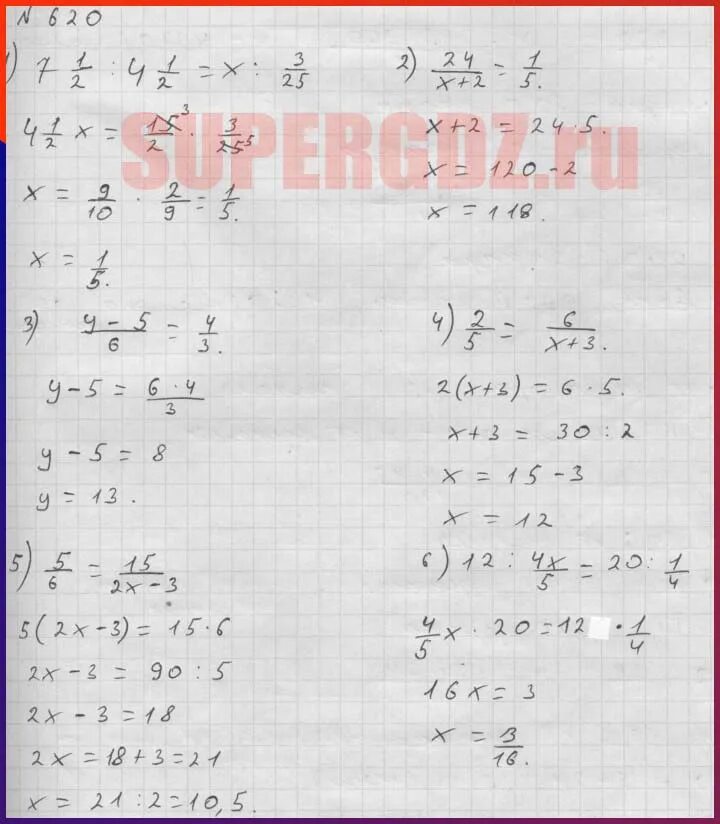 N 620
1) 7 1/2 : 4 1/2 = x : 3/25
4 1/2 x = 15/2 · 3/25
3 5
x = 9/10 · 2/9 = 1/5.
x = 1/5.
2) 24/(x+2) = 1/5.
x+2 = 24·5.
x = 120-2
x = 118.
3) (y-5)/6 = 4/3.
y-5 = (6·4)/3
y-5 = 8
y = 13.
4) 2/5 = 6/(x+3).
2(x+3) = 6·5.
x+3 = 30:2
x = 15-3
x = 12
5) 5/6 = 15/(2x-3)
5(2x-3) = 15·6
2x-3 = 90:5
2x-3 = 18
2x = 18+3 = 21
x = 21:2 = 10,5.
6) 12 : 4x/5 = 20 : 1/4
4/5 x · 20 = 12 · 1/4
16x = 3
x = 3/16.
SUPERGDZ.ru